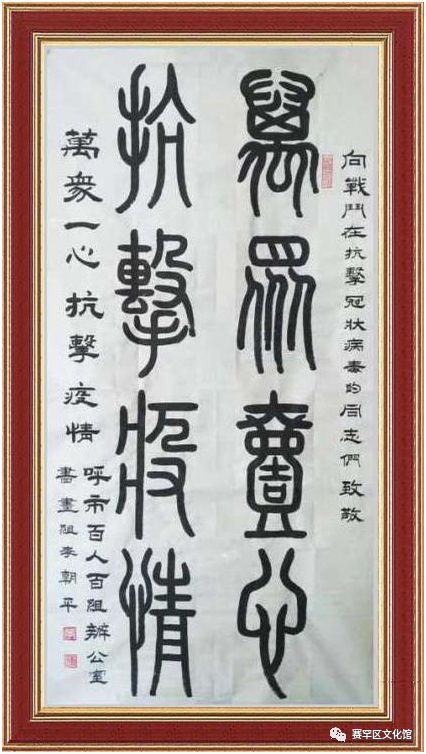 向戰鬥在抗擊冠狀病毒的同志們致敬
萬眾壹心
抗擊疫情
萬衆一心 抗擊疫情
呼市百人百組辦公室
書畫組李朝平
赛罕区文化馆